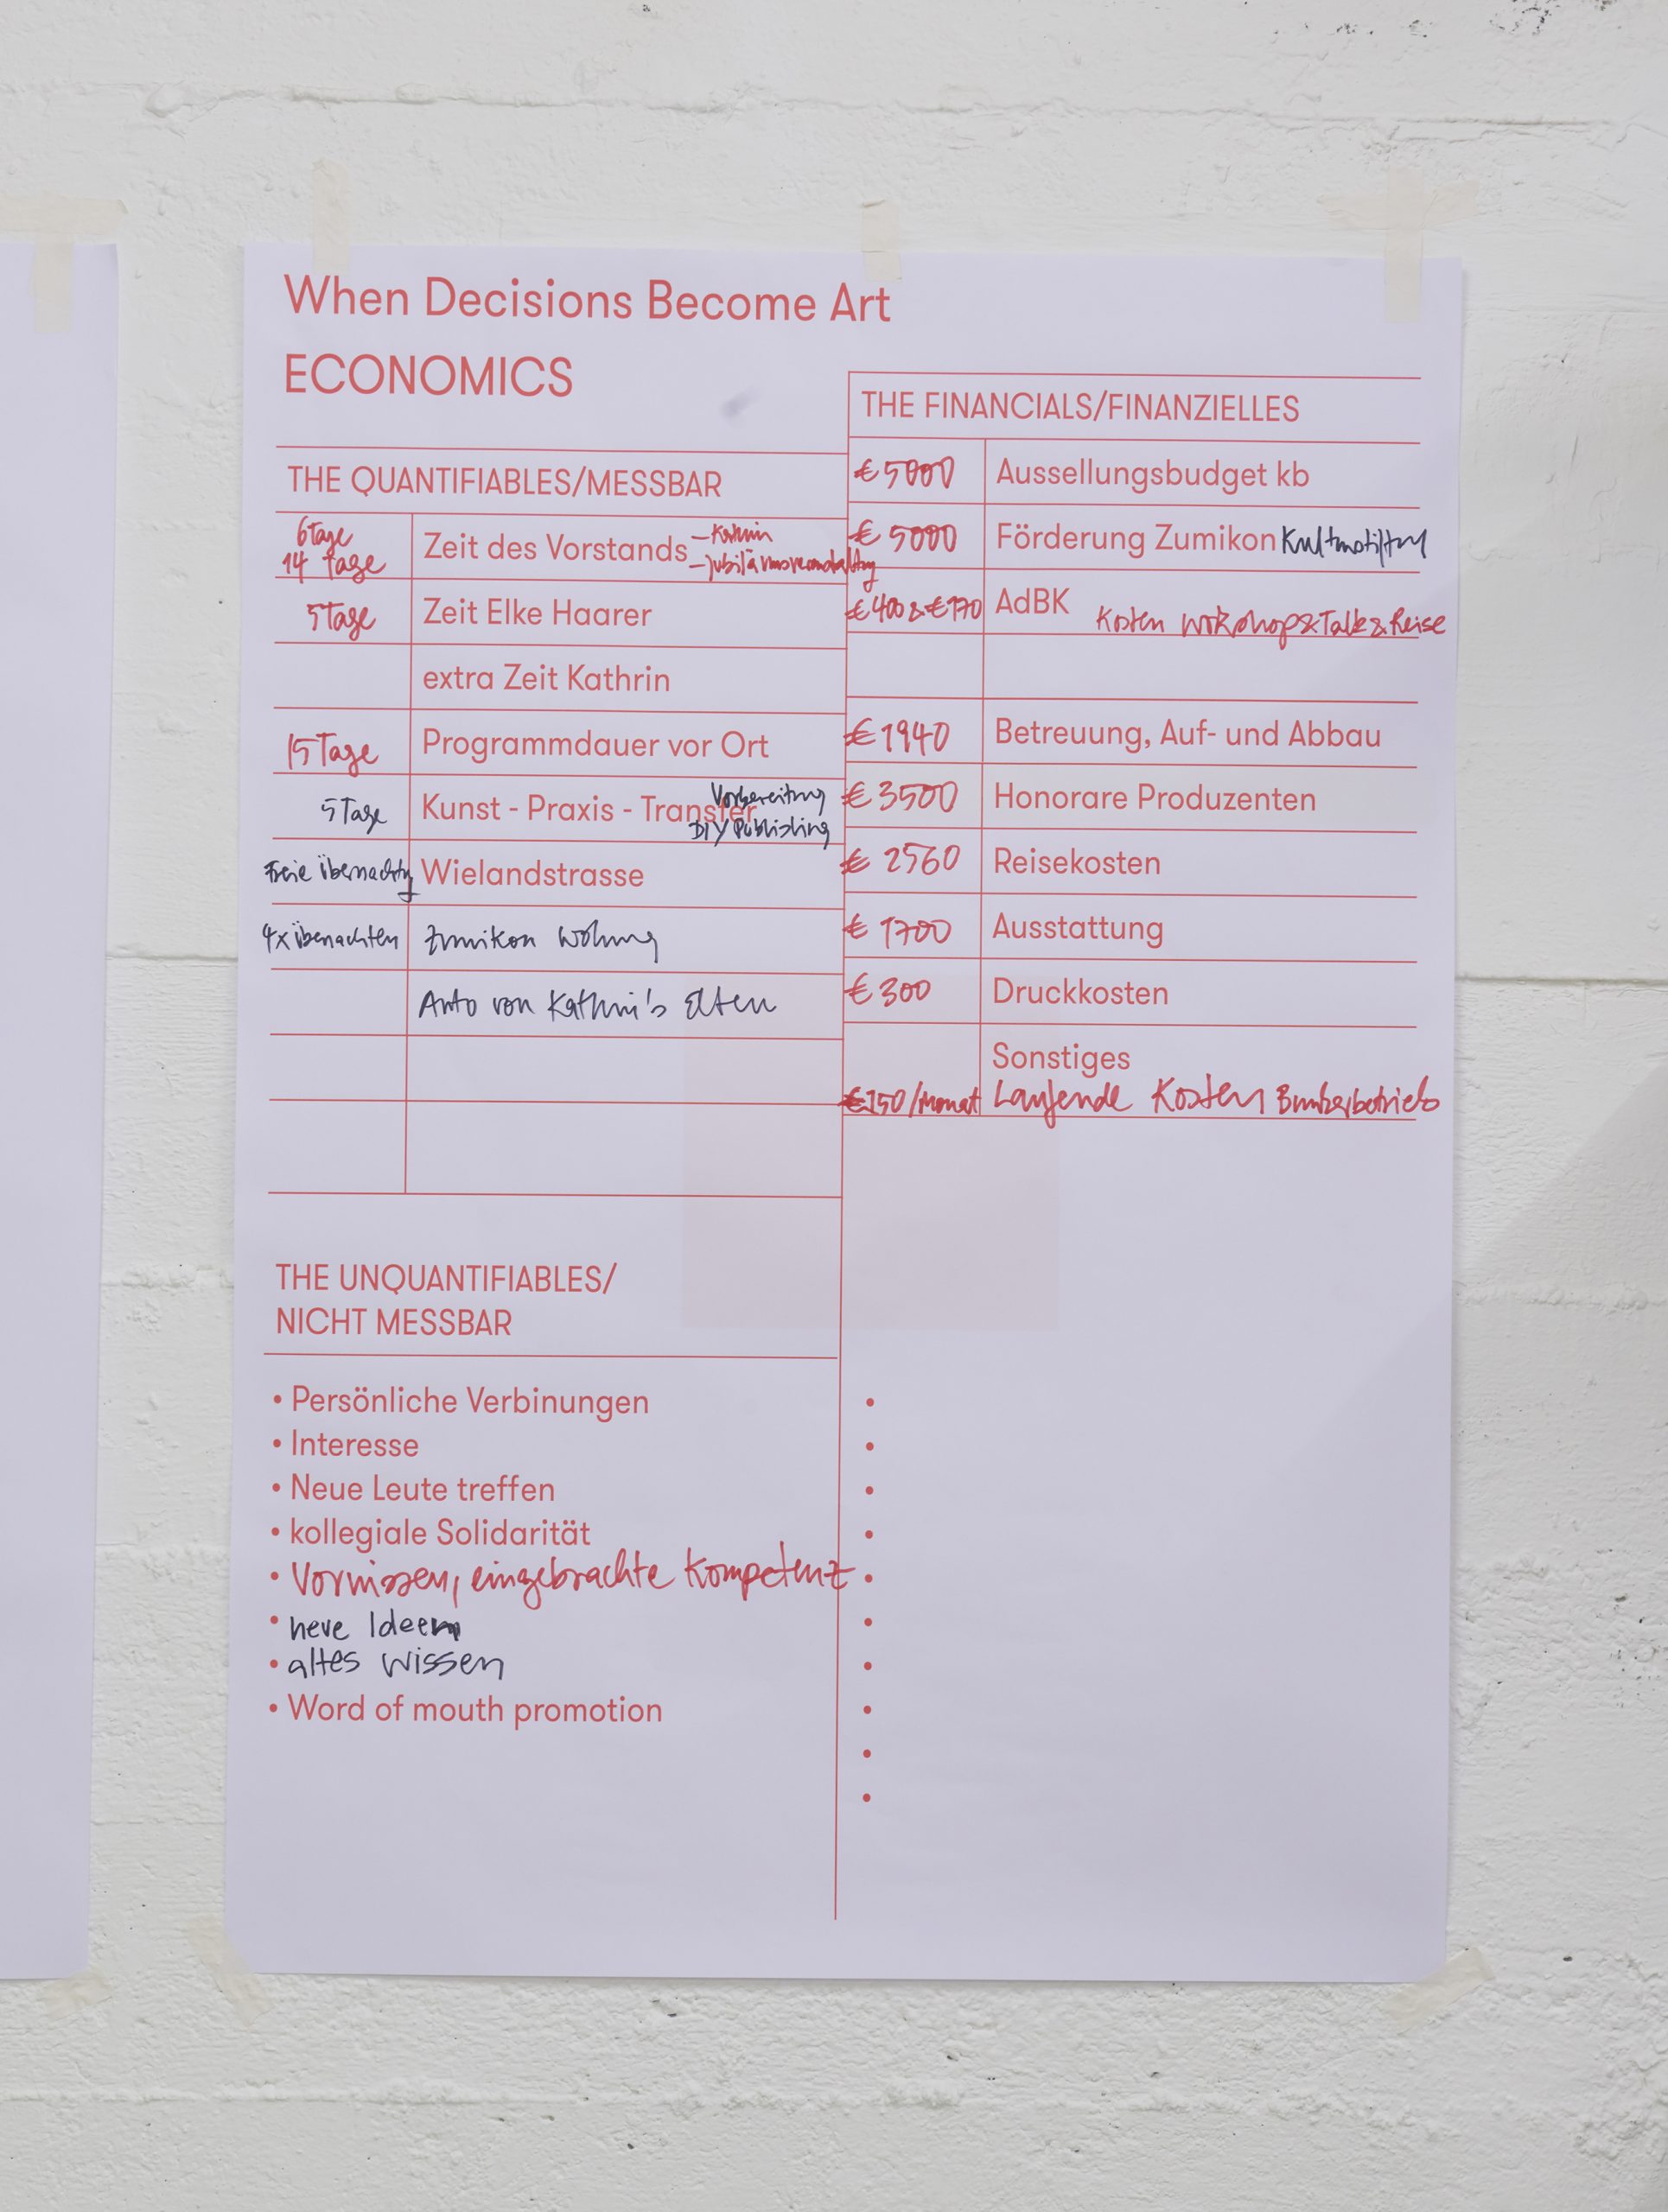 When Decisions Become Art
ECONOMICS
THE QUANTIFIABLES/MESSBAR
6 Tage
14 Tage
Zeit des Vorstands
– Kathrin
– Jubiläumsveranstaltung
5 Tage Zeit Elke Haarer
extra Zeit Kathrin
15 Tage Programmdauer vor Ort
5 Tage Kunst - Praxis - Transfer
Vorbereitung
DIY Publishing
Freie Übernachtg Wielandstrasse
4x Übenachten Zumikon Wohnung
Auto von Kathrin's Eltern
THE UNQUANTIFIABLES/
NICHT MESSBAR
• Persönliche Verbinungen
• Interesse
• Neue Leute treffen
• kollegiale Solidarität
• Vorwissen, eingebrachte Kompetenz
• neue Ideen
• altes Wissen
• Word of mouth promotion
THE FINANCIALS/FINANZIELLES
€ 5000 Aussellungsbudget kb
€ 5000 Förderung Zumikon Kulturstiftung
€ 400 & € 170 AdBK Kosten Workshop & Talk & Reise
€ 1940 Betreuung, Auf- und Abbau
€ 3500 Honorare Produzenten
€ 2560 Reisekosten
€ 1700 Ausstattung
€ 300 Druckkosten
Sonstiges
€ 150/Monat Laufende Kosten Bunkerbetrieb